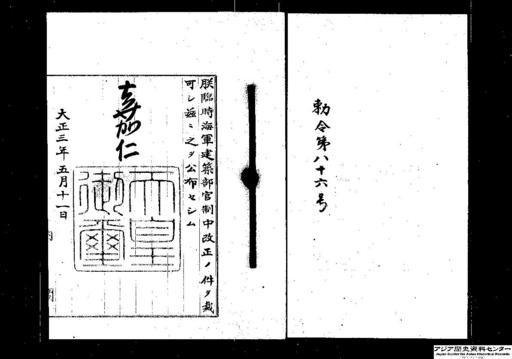 勅令第八十六号
朕臨時海軍建築部官制中改正ノ件ヲ裁
可シ茲ニ之ヲ公布セシム
嘉仁
天皇
御璽
大正三年五月十一日
アジア歴史資料センター
Japan Center for Asian Historical Records